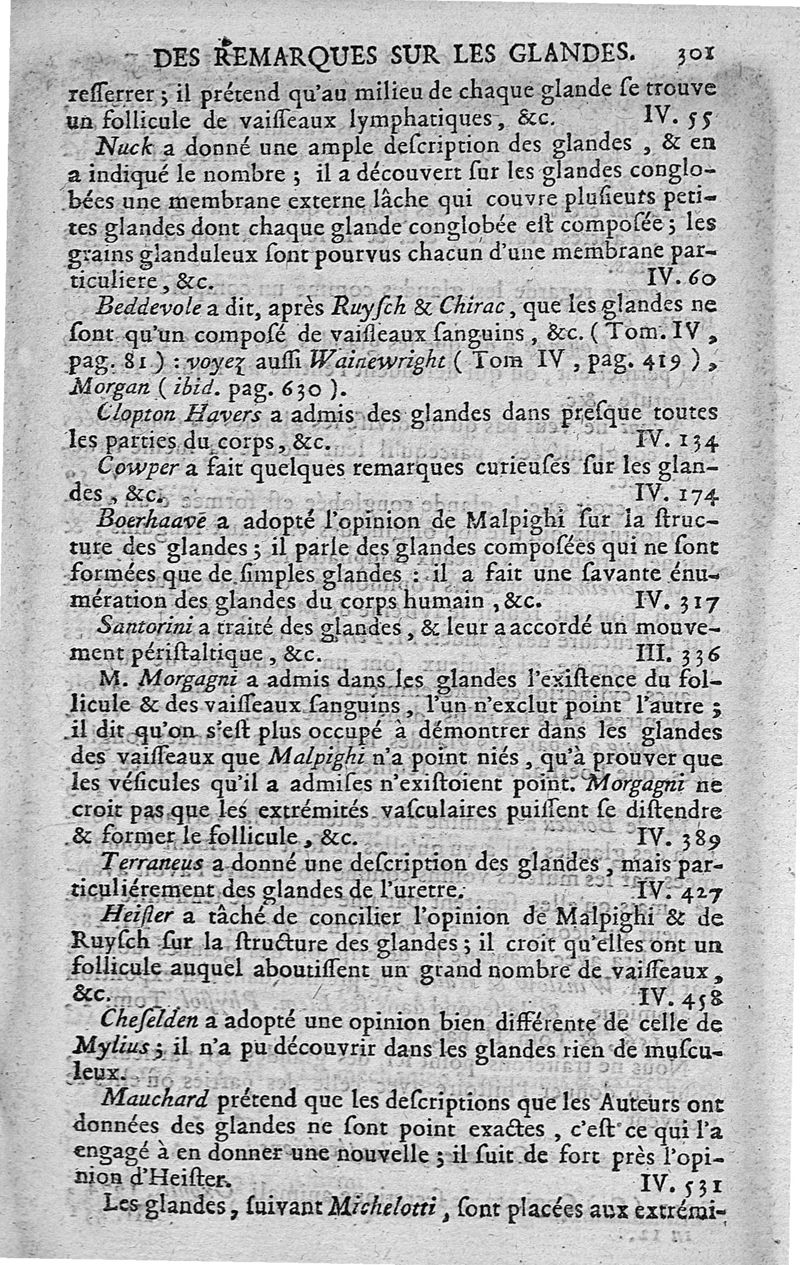 DES REMARQUES SUR LES GLANDES. 301
reſſerrer ; il prétend qu'au milieu de chaque glande ſe trouve
un follicule de vaiſſeaux lymphatiques, &c. IV. 55
Nuck a donné une ample deſcription des glandes, & en
a indiqué le nombre ; il a découvert ſur les glandes conglo-
bées une membrane externe lâche qui couvre pluſieurs peti-
tes glandes dont chaque glande conglobée eſt compoſée ; les
grains glanduleux ſont pourvus chacun d'une membrane par-
ticuliere, &c. IV. 60
Beddevole a dit, après Ruyſch & Chirac, que les glandes ne
ſont qu'un compoſé de vaiſſeaux ſanguins, &c. ( Tom. IV,
pag. 81 ) : voyez auſſi Wainewright ( Tom IV, pag. 419 ),
Morgan ( ibid. pag. 630 ).
Clopton Havers a admis des glandes dans preſque toutes
les parties du corps, &c. IV. 134
Cowper a fait quelques remarques curieuſes ſur les glan-
des, &c. IV. 174
Boerhaave a adopté l'opinion de Malpighi ſur la ſtruc-
ture des glandes ; il parle des glandes compoſées qui ne ſont
formées que de ſimples glandes : il a fait une ſavante énu-
mération des glandes du corps humain, &c. IV. 317
Santorini a traité des glandes, & leur a accordé un mouve-
ment périſtaltique, &c. III. 336
M. Morgagni a admis dans les glandes l'exiſtence du fol-
licule & des vaiſſeaux ſanguins, l'un n'exclut point l'autre ;
il dit qu'on s'eſt plus occupé à démontrer dans les glandes
des vaiſſeaux que Malpighi n'a point niés, qu'à prouver que
les véſicules qu'il a admiſes n'exiſtoient point. Morgagni ne
croit pas que les extrémités vaſculaires puiſſent ſe diſtendre
& former le follicule, &c. IV. 389
Terraneus a donné une deſcription des glandes, mais par-
ticuliérement des glandes de l'uretre. IV. 427
Heiſter a tâché de concilier l'opinion de Malpighi & de
Ruyſch ſur la ſtructure des glandes ; il croit qu'elles ont un
follicule auquel aboutiſſent un grand nombre de vaiſſeaux,
&c. IV. 458
Cheſelden a adopté une opinion bien différente de celle de
Mylius ; il n'a pu découvrir dans les glandes rien de muſcu-
leux.
Mauchard prétend que les deſcriptions que les Auteurs ont
données des glandes ne ſont point exactes, c'eſt ce qui l'a
engagé à en donner une nouvelle ; il ſuit de fort près l'opi-
nion d'Heiſter. IV. 531
Les glandes, ſuivant Michelotti, ſont placées aux extrémi-